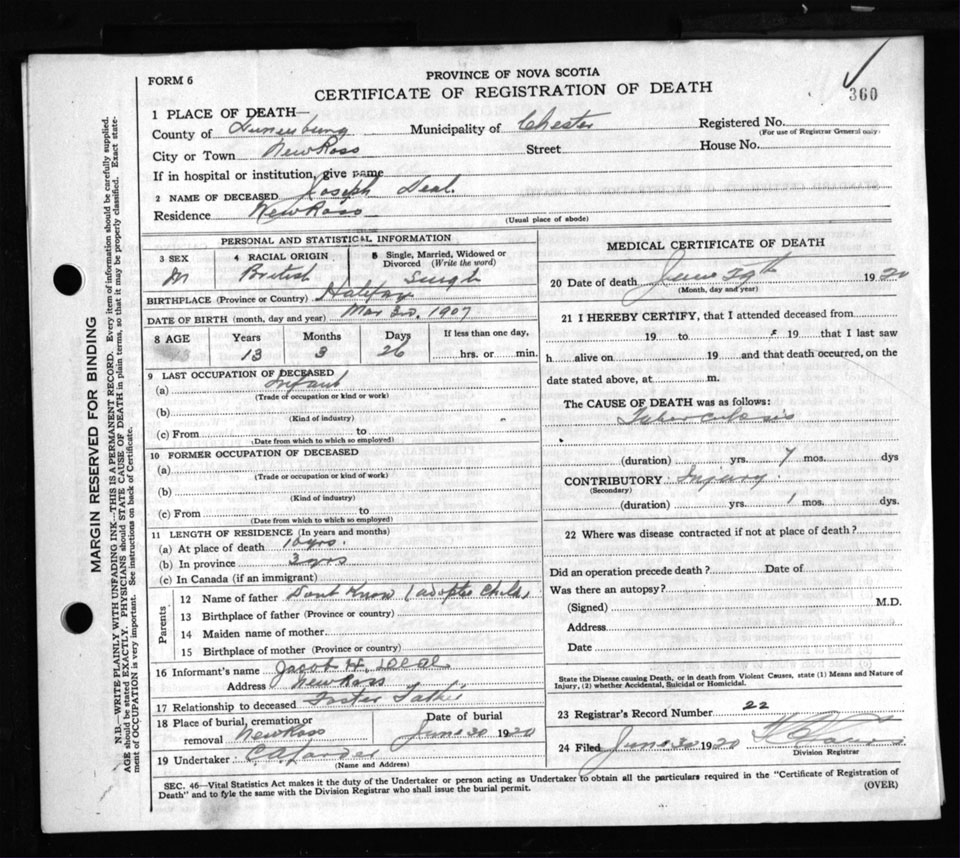 FORM 6
PROVINCE OF NOVA SCOTIA
CERTIFICATE OF REGISTRATION OF DEATH
360
1 PLACE OF DEATH—
County of Lunenburg Municipality of Chester Registered No.
(For use of Registrar General only)
City or Town New Ross Street House No.
If in hospital or institution, give name
2 NAME OF DECEASED Joseph Deal.
Residence New Ross
(Usual place of abode)
PERSONAL AND STATISTICAL INFORMATION
3 SEX 4 RACIAL ORIGIN 5 Single, Married, Widowed or Divorced (Write the word)
M British Single
BIRTHPLACE (Province or Country) Halifax
DATE OF BIRTH (month, day and year) Mar 3rd, 1907
8 AGE Years Months Days If less than one day,
13 13 3 26 hrs. or min.
9 LAST OCCUPATION OF DECEASED
(a) Infant
(Trade of occupation or kind or work)
(b)
(Kind of industry)
(c) From to
(Date from which to which so employed)
10 FORMER OCCUPATION OF DECEASED
(a)
(Trade or occupation or kind of work)
(b)
(Kind of industry)
(c) From to
(Date from which to which so employed)
11 LENGTH OF RESIDENCE (In years and months)
(a) At place of death 10 yrs.
(b) In province 3 yrs
(c) In Canada (if an immigrant)
Parents
12 Name of father Dont Know (adopted Child)
13 Birthplace of father (Province or country)
14 Maiden name of mother
15 Birthplace of mother (Province or country)
16 Informant's name Jacob H. Deal
Address New Ross
17 Relationship to deceased Foster Father
18 Place of burial, cremation or removal New Ross Date of burial June 30 1920
19 Undertaker C.A. Larder
(Name and Address)
MEDICAL CERTIFICATE OF DEATH
20 Date of death June 29th 1920
(Month, day and year)
21 I HEREBY CERTIFY, that I attended deceased from
19 to 19 that I last saw
h alive on 19 and that death occurred, on the
date stated above, at m.
The CAUSE OF DEATH was as follows:
Tuberculosis
(duration) yrs. 7 mos. dys
CONTRIBUTORY Injury
(Secondary)
(duration) yrs. 1 mos. dys.
22 Where was disease contracted if not at place of death?
Did an operation precede death? Date of
Was there an autopsy?
(Signed) M.D.
Address
Date
State the Disease causing Death, or in death from Violent Causes, state (1) Means and Nature of
Injury, (2) whether Accidental, Suicidal or Homicidal.
23 Registrar's Record Number 22
24 Filed June 30 1920
Division Registrar
SEC. 46—Vital Statistics Act makes it the duty of the Undertaker or person acting as Undertaker to obtain all the particulars required in the "Certificate of Registration of
Death" and to fyle the same with the Division Registrar who shall issue the burial permit.
(OVER)
MARGIN RESERVED FOR BINDING
N.B.—WRITE PLAINLY WITH UNFADING INK—THIS IS A PERMANENT RECORD. Every item of information should be carefully supplied.
AGE should be stated EXACTLY. PHYSICIANS should STATE CAUSE OF DEATH in plain terms, so that it may be properly classified. Exact statement
of OCCUPATION is very important. See instructions on back of Certificate.